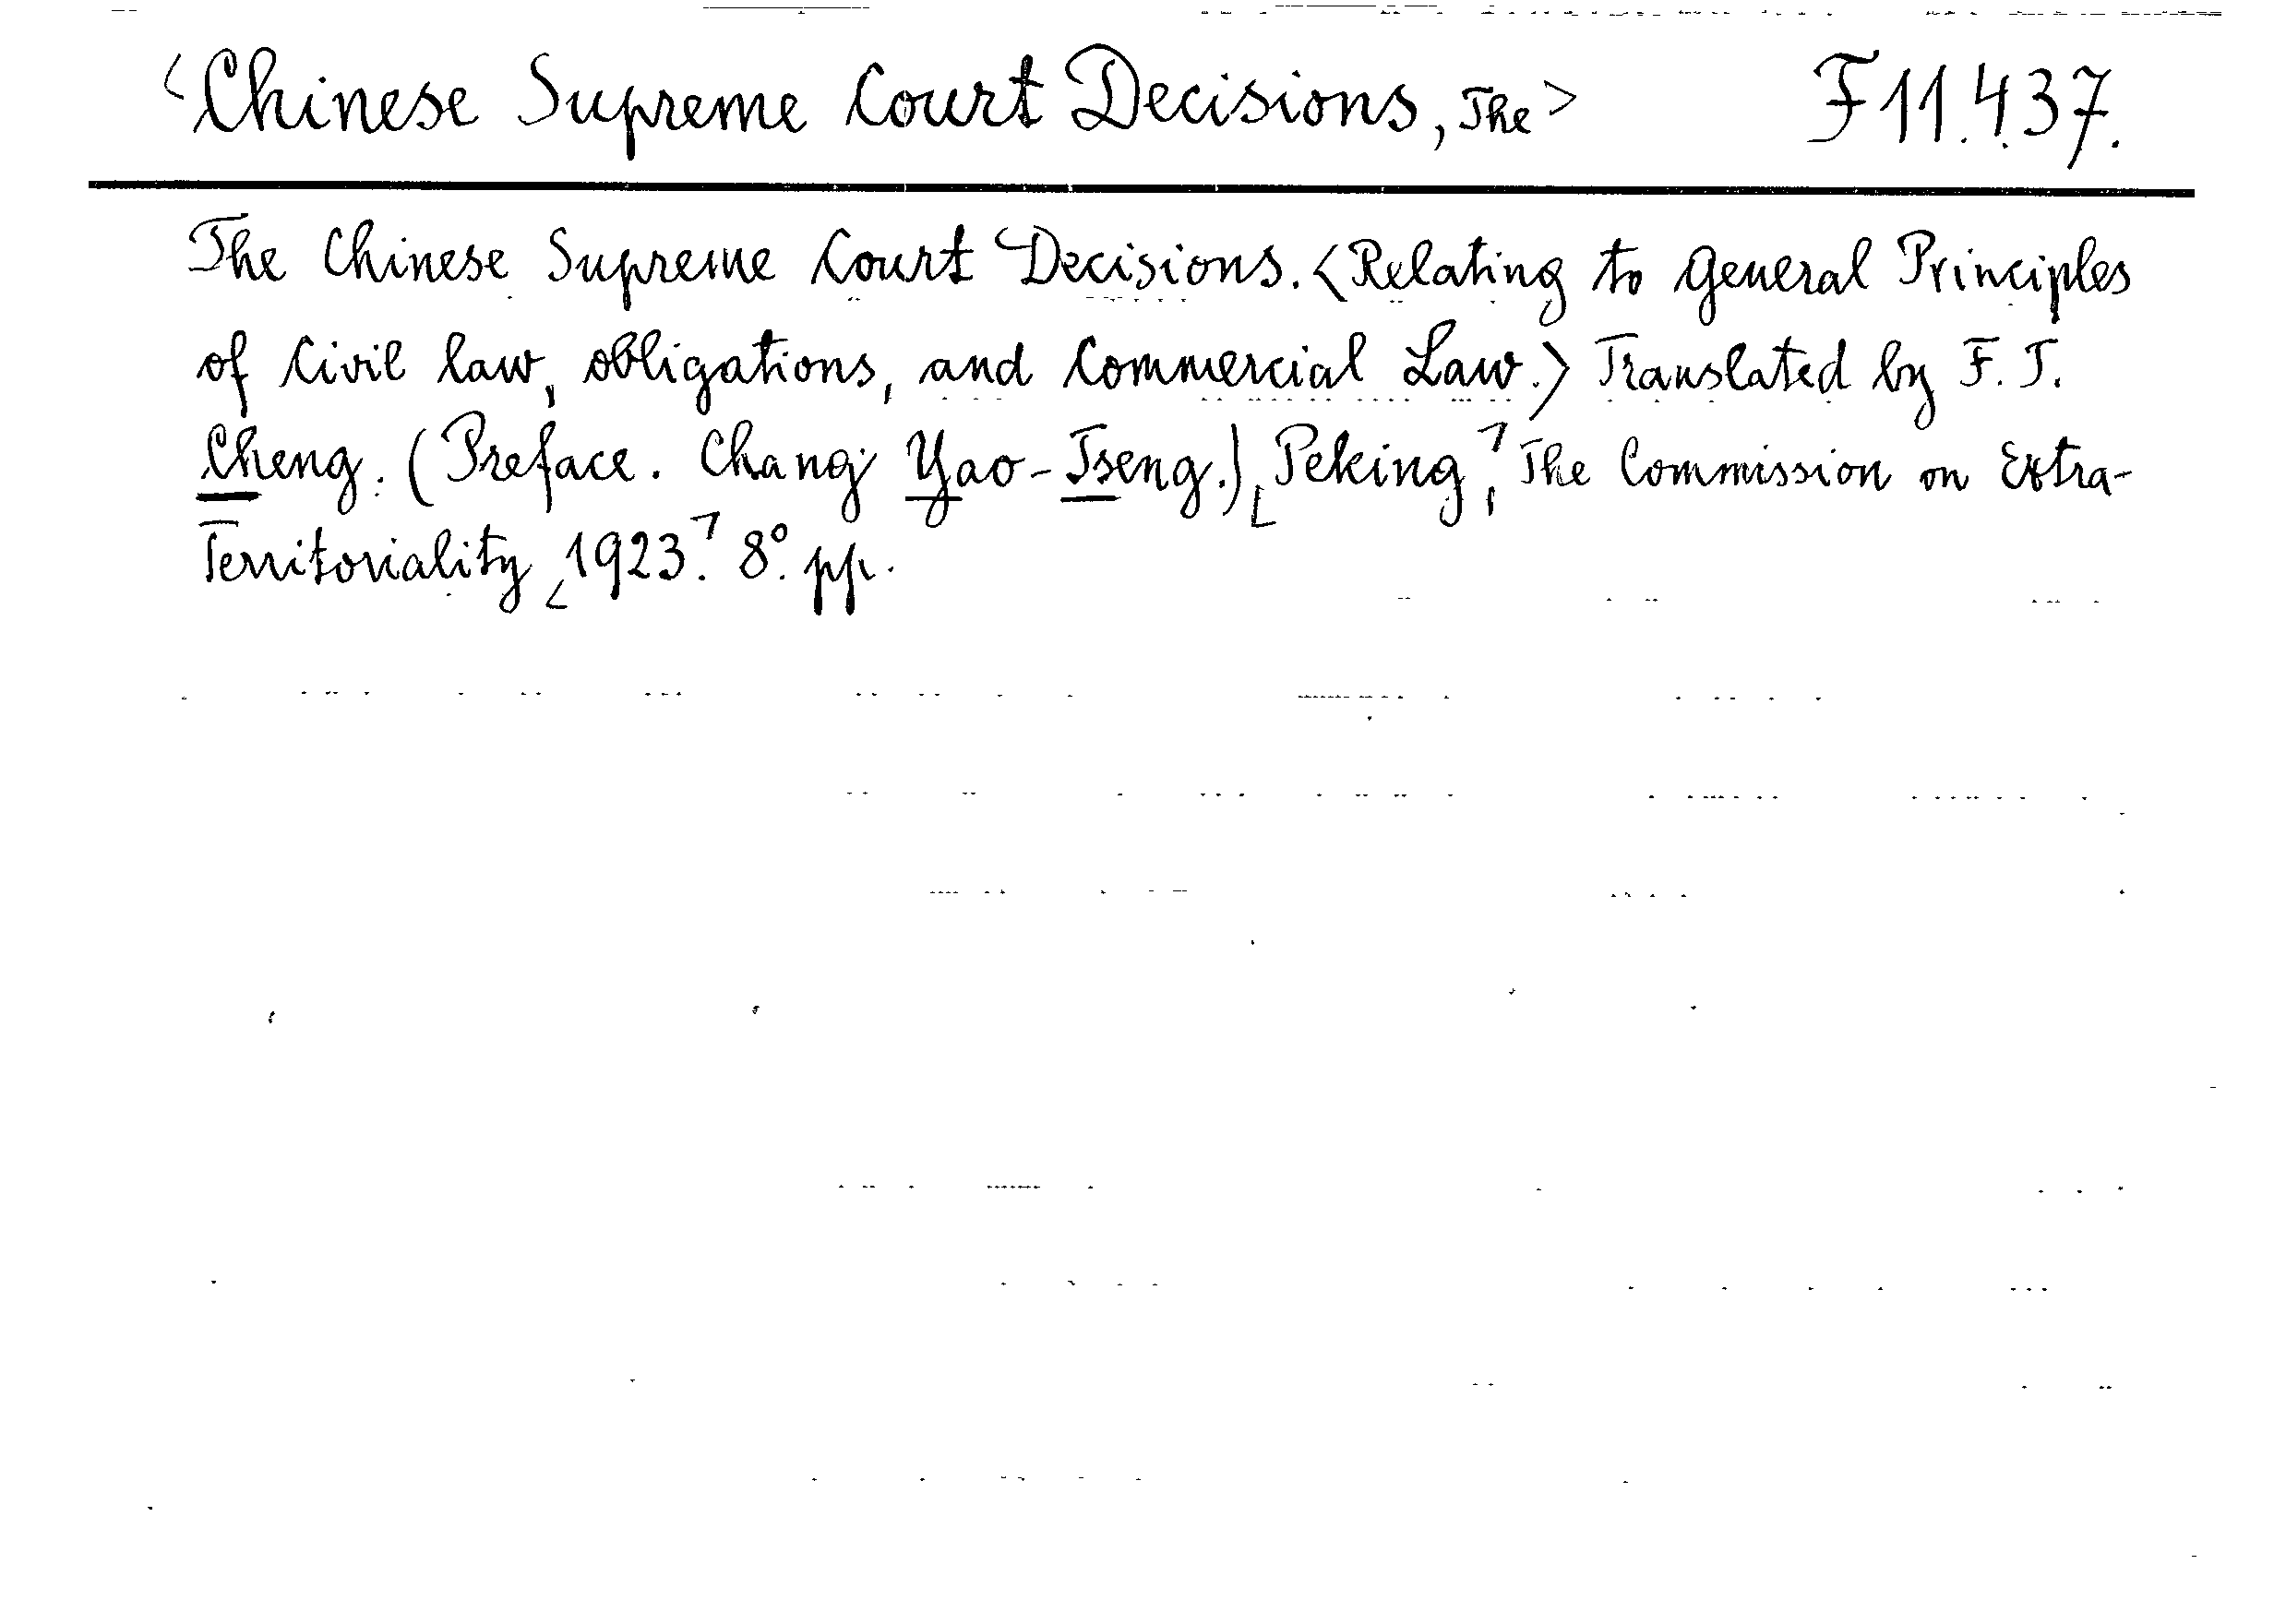 <Chinese Supreme Court Decisions, The> F 11.437.
The Chinese Supreme Court Decisions. <Relating to General Principles
of Civil law, obligations, and Commercial Law.> Translated by F. T.
Cheng. (Preface. Chang Yao-Tseng.) [Peking], The Commission on Extra-
Territoriality [1923]. 8° pp.